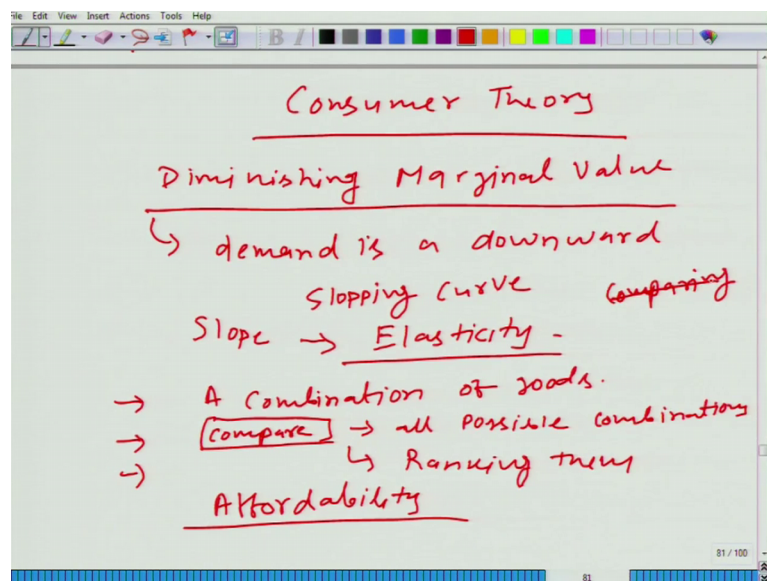 File Edit View Insert Actions Tools Help
B I
Consumer Theory
Diminishing Marginal Value
↳ demand is a downward
Slopping Curve Comparing
Slope → Elasticity -
→ A Combination of goods.
→ Compare → all possible combinations
→ ↳ Ranking them
Affordability
81 / 100
81